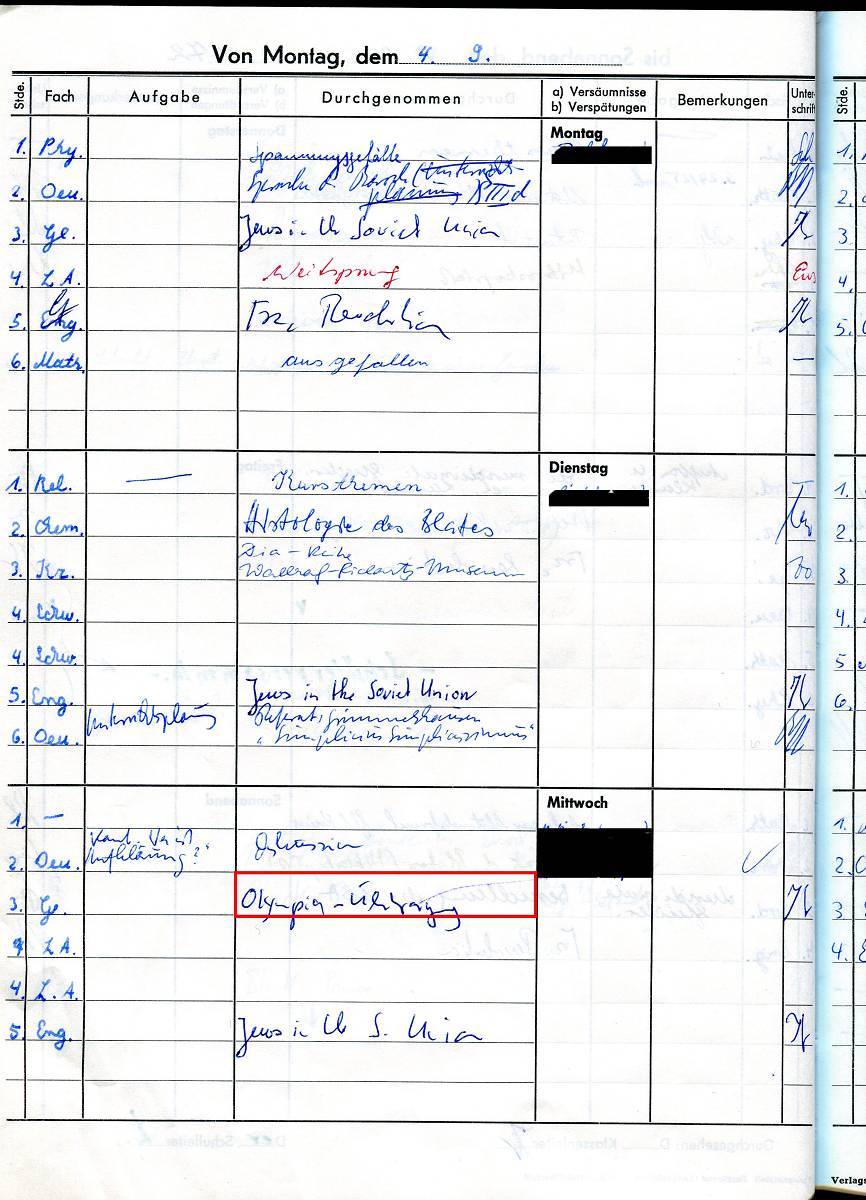 Von Montag, dem 4. 9.
Stde. Fach Aufgabe Durchgenommen a) Versäumnisse b) Verspätungen Bemerkungen Unter-schrift Stde.
Montag
1. Phy. Spannungsgefälle
2. Deu. Barock XIII d
3. Ge. Jews in the Soviet Union
4. L.A. Weitsprung
5. Frz. Revolution
6. Math. ausgefallen
Dienstag
1. Rel. — Kursthemen
2. Chem. Histologie des Blutes
Dia-Reihe
3. Kr. Wallraf-Richartz-Museum
4. Schw.
4. Schw.
5. Eng. Jews in the Soviet Union
Referat: Grimmelshausen
6. Deu. Unterrichtsplanung "Simplicius Simplicissimus"
Mittwoch
1. —
2. Deu. Kant. Was ist Aufklärung?" Diskussion
3. Ge. Olympia-Übertragung
4. L.A.
4. L.A.
5. Eng. Jews in the S. Union
Verlag